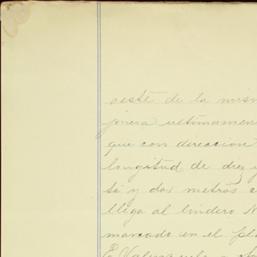 oeste de la mism
jonera ultimamen
que con direccion
longitud de diez y
se y dos metros c
llega al lindero N
marcado en el pla